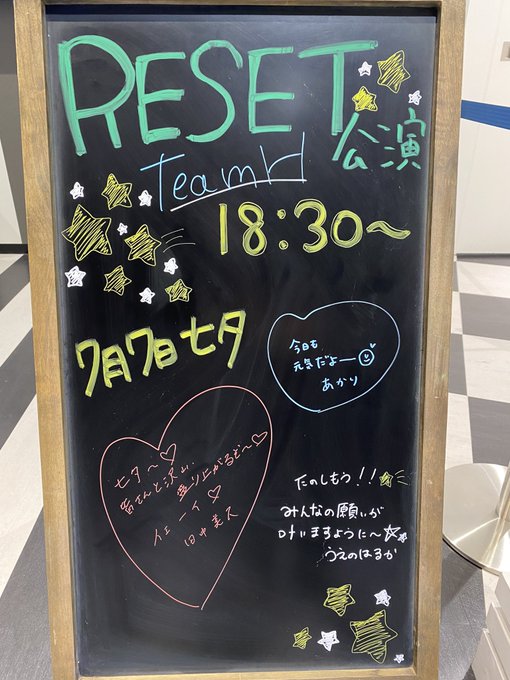 RESET
公演
TeamH
18:30〜
7月7日 七夕
今日も
元気だよー
あかり
七夕〜♡
皆さんと沢山
盛り上がるど〜♡
イェーイ♡
田中美久
たのしもう!!
みんなの願いが
叶いますように〜☆
うえのはるか